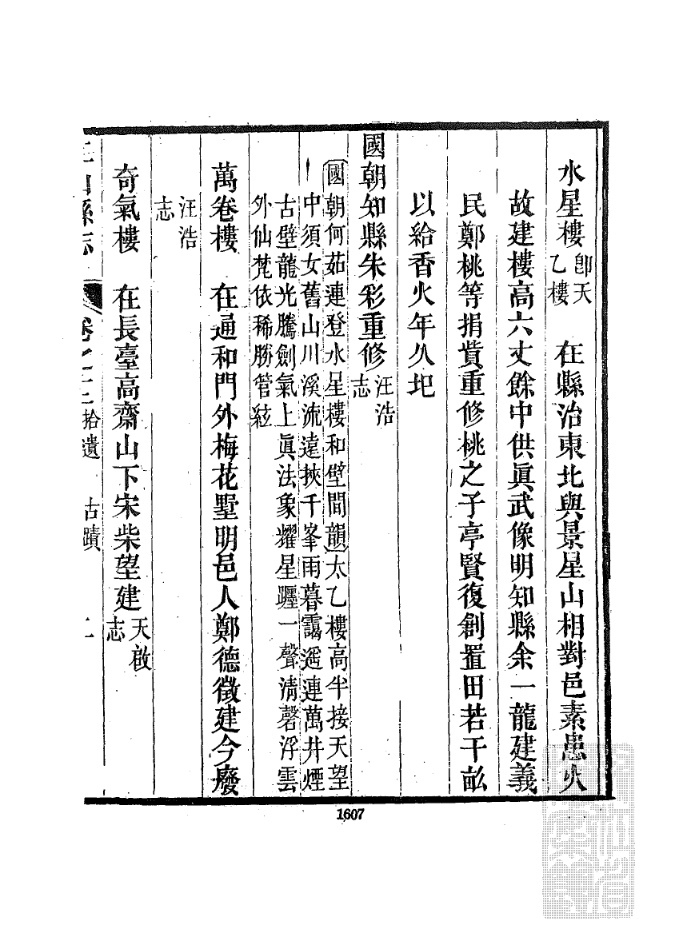 水星樓 即天乙樓 在縣治東北與景星山相對邑素患火
故建樓高六丈餘中供眞武像明知縣余一龍建義
民鄭桃等捐貲重修桃之子亭賢復創置田若干畝
以給香火年久圮
國朝知縣朱彩重修 汪浩志
國朝何茹連登水星樓和壁間韻 太乙樓高半接天望
中須女舊山川溪流遠挾千峯雨暮靄遥連萬井煙
古壁龍光騰劍氣上眞法象耀星躔一聲清磬浮雲
外仙梵依稀勝管絃
萬卷樓 在通和門外梅花墅明邑人鄭德徵建今廢
汪浩志
奇氣樓 在長臺高齋山下宋柴望建 天啟志
山縣志 卷之十二 拾遺 古蹟
1607